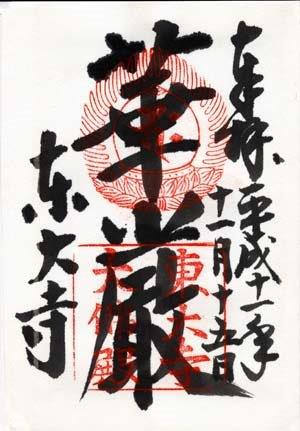 奉拝
平成十一年
十一月十五日
華厳
東大寺
東大寺
大仏殿